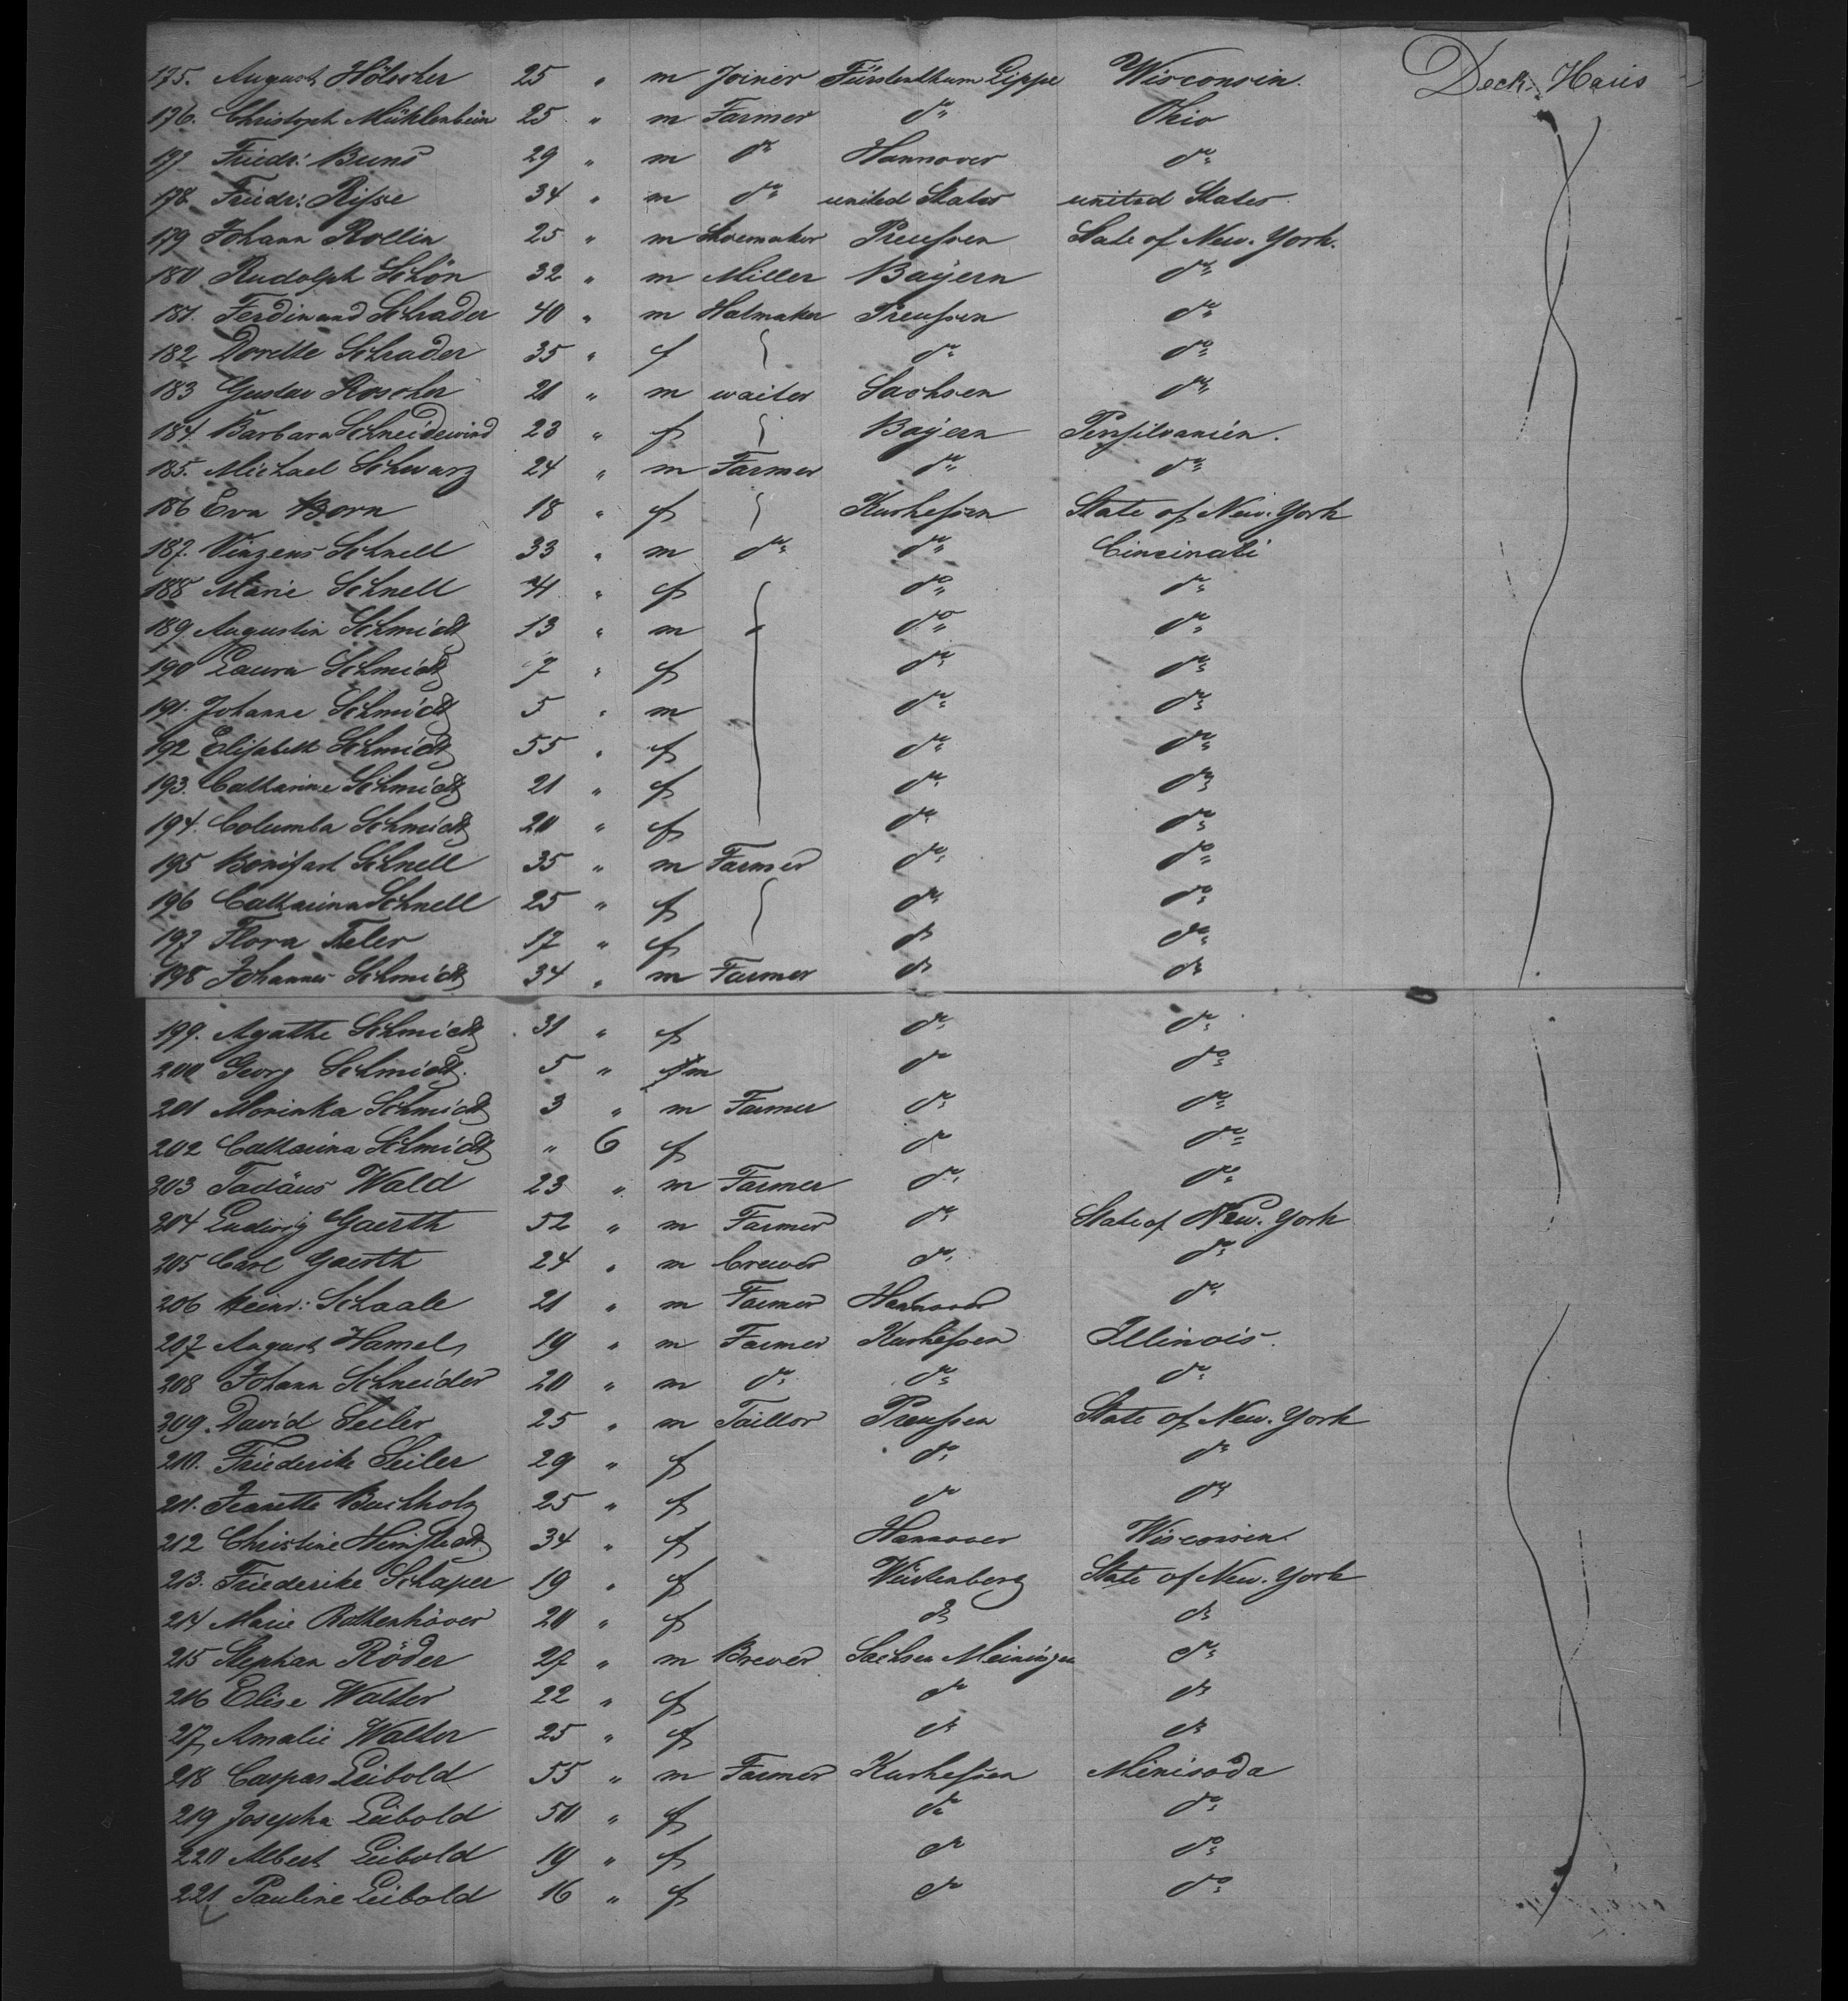 175. August Hölscher 25 " m Joiner Fürstenthum Lippe Wisconsin. Deck-Haus
176. Christoph Mühlenbein 25 " m Farmer do Ohio
177 Friedr: Buns 29 " m do Hannover do
178. Friedr: Risse 34 " m do united States united States.
179 Johann Rollin 25 " m Shoemaker Preussen State of New-York.
180 Rudolph Schön 32 " m Miller Bayern do
181. Ferdinand Schrader 40 " m Hatmaker Preussen do
182 Dorette Schrader 35 " f do do
183 Gustav Roscher 21 " m waiter Sachsen do
184. Barbara Schneidewind 23 " f Bayern Pensilvanien.
185. Michael Schwarz 24 " m Farmer do do
186 Eva Born 18 " f Kurhessen State of New-York
187. Vinzens Schnell 33 " m do do Cincinati
188 Marie Schnell " f do do
189. Augustin Schmidt 13 " m do do
190 Laura Schmidt 7 " f do do
191. Johanne Schmidt 5 " m do do
192 Elisabeth Schmidt 55 " f do do
193. Catharine Schmidt 21 " f do do
194. Columba Schmidt 20 " f do do
195 Bonifart Schnell 35 " m Farmer do do
196 Catharina Schnell 25 " f do do
197 Flora 17 " f do do
198 Johannes Schmidt 34 " m Farmer do do
199. Agathe Schmidt 31 " f do do
200 Georg Schmidt. 5 " m do do
201 Schmidt 3 " m Farmer do do
202 Catharina Schmidt " 6 f do do
203 Tadäus Wald 23 " m Farmer do do
204 Ludwig Gaerth 52 " m Farmer do State of New-York
205 Carl Gaerth 24 " m do do
206 Heinr: Schaale 21 " m Farmer Hannover do
207 August Hamel 19 " m Farmer Kurhessen Illinois.
208 Johann Schneider 20 " m do do do
209. David Seiler 25 " m Taillor Preussen State of New-York
210. Friederike Seiler 29 " f do do
211. Jeanette Buchholz 25 " f do do
212 Christine Heinstedt 34 " f Hannover Wisconsin.
213. Friederike Schaper 19 " f Würtenberg State of New-York
214 Marie Rothenhöver 20 " f do do
215 Stephan Röder 27 " m Brever Sachsen Meiningen do
216 Elise Walter 22 " f do do
217, Amalie Walter 25 " f do do
218 Caspar Leibold 55 " m Farmer Kurhessen Minisoda
219 Josepha Leibold 50 " f do do
220 Albert Leibold 19 " f do do
221 Pauline Leibold 16 " f do do